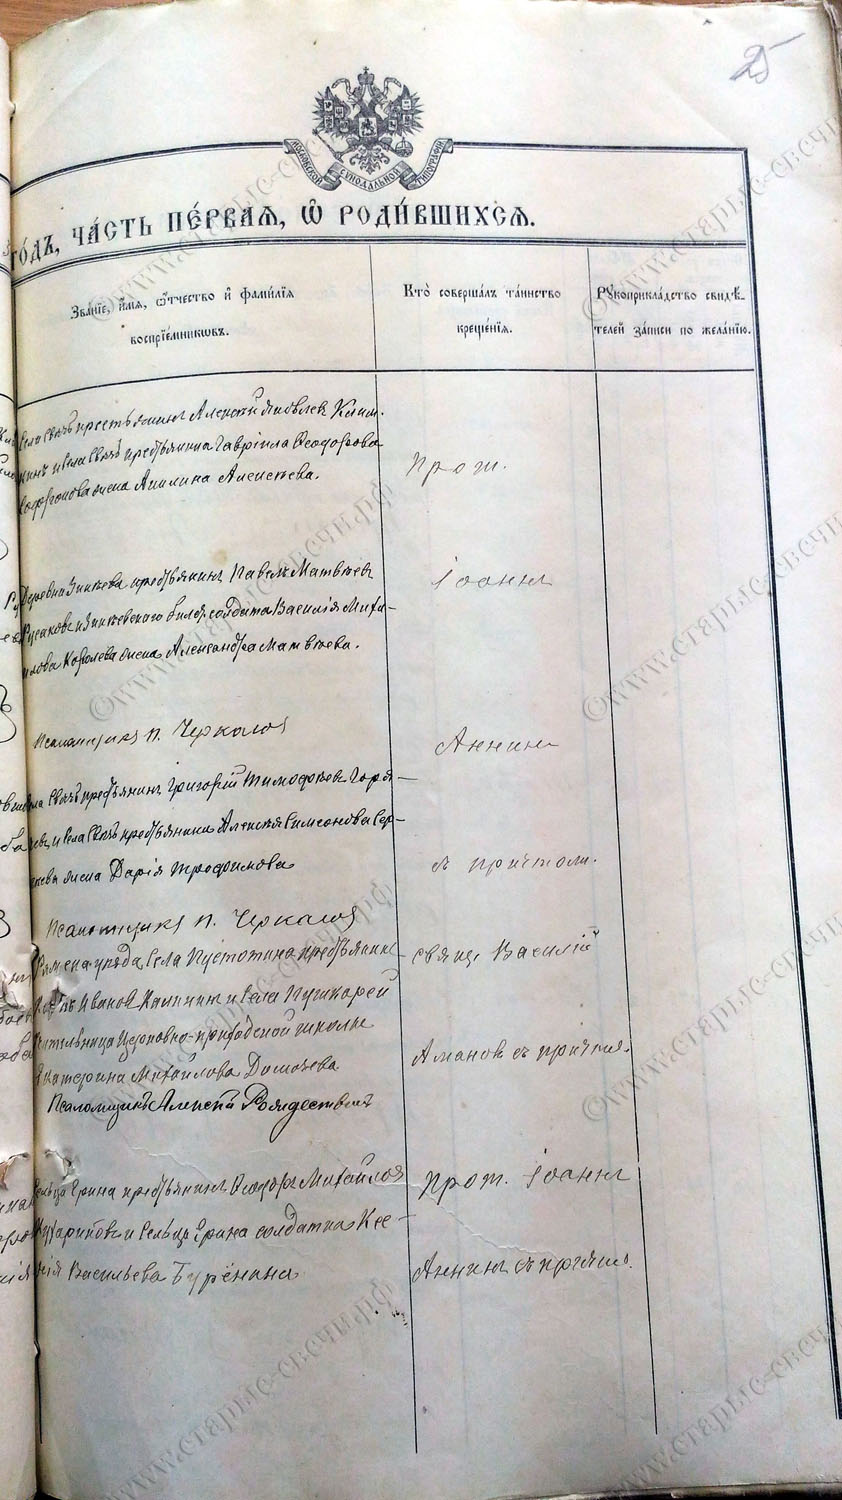 25
МОСКОВСКОЙ СѴНОДАЛЬНОЙ ТИПОГРАФІИ
го́дъ, ча́сть пе́рвая, ѡ҆ роди́вшихся.
Зва́нїе, и҆́мя, ѻ҆́тчество и҆ фами́лїя
воспрїе́мникѡвъ.
Кто̀ соверша́лъ та́инство
креще́нїя.
Рꙋкоприкла́дство свидѣ́-
телей за́писи по жела́нїю.
села крестьянинъ Алексѣй Яковлевъ Клим-
кинъ и села крестьянина Гавріила Ѳеодорова
жена Акилина Алексѣева.
Прот.
Деревни крестьянинъ Павелъ Матвѣевъ
Русаковъ и солдата Василія Миха-
илова Королева жена Александра Матвѣева.
Іоаннъ
Псаломщикъ П. Черкасовъ
Аннинъ
крестьянинъ Григорій Тимоѳеевъ Горя-
и села крестьянина Алексѣя Симеонова Сер-
жена Дарія Трофимова
съ причтомъ.
Псаломщикъ П. Черкасовъ
уѣзда села Пустотина крестьянинъ
Ивановъ Калининъ и села Пушкарей
учительница Церковно-приходской школы
Екатерина Михайлова
Псаломщикъ Алексѣй Рождественъ
свящ. Василій
Амановъ съ причтом.
сельца Ерина крестьянинъ Ѳеодоръ Михайловъ
и сельца Ерина солдатка Ксе-
нія Васильева Бурёнина
Прот. Іоаннъ
Аннинъ съ причтомъ.
©www.старые-свечи.рф